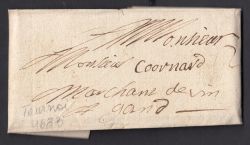 Monsieur
Monsieur Coornard
Marchant de vin
a gand
Tournai
1683